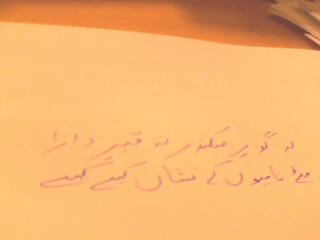 نہ گور سکندر نہ قبر دارا
مٹے نامیوں کے نشاں کیسے کیسے